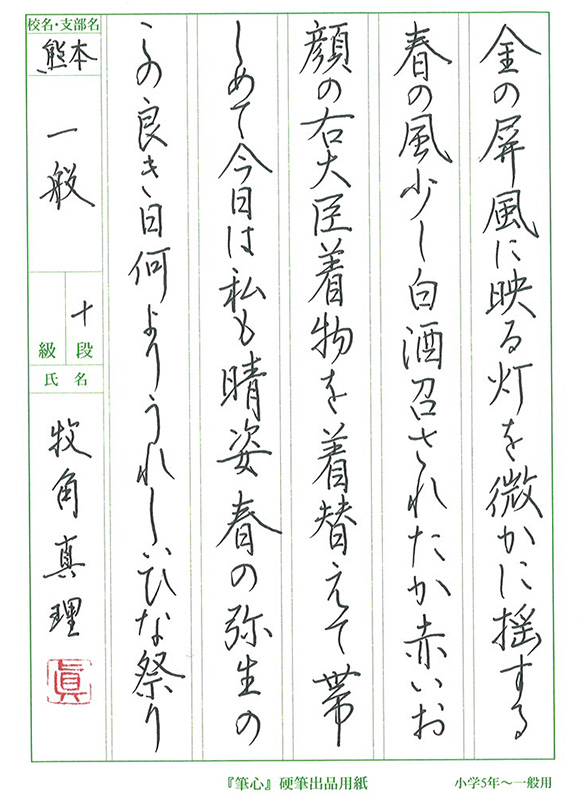 金の屏風に映る灯を微かに揺する
春の風少し白酒召されたか赤いお
顔の右大臣着物を着替えて帯
しめて今日は私も晴姿春の弥生の
この良き日何よりうれしいひな祭り
校名・支部名
熊本
一般
十段
級
氏名
牧角真理
眞
『筆心』硬筆出品用紙
小学5年〜一般用